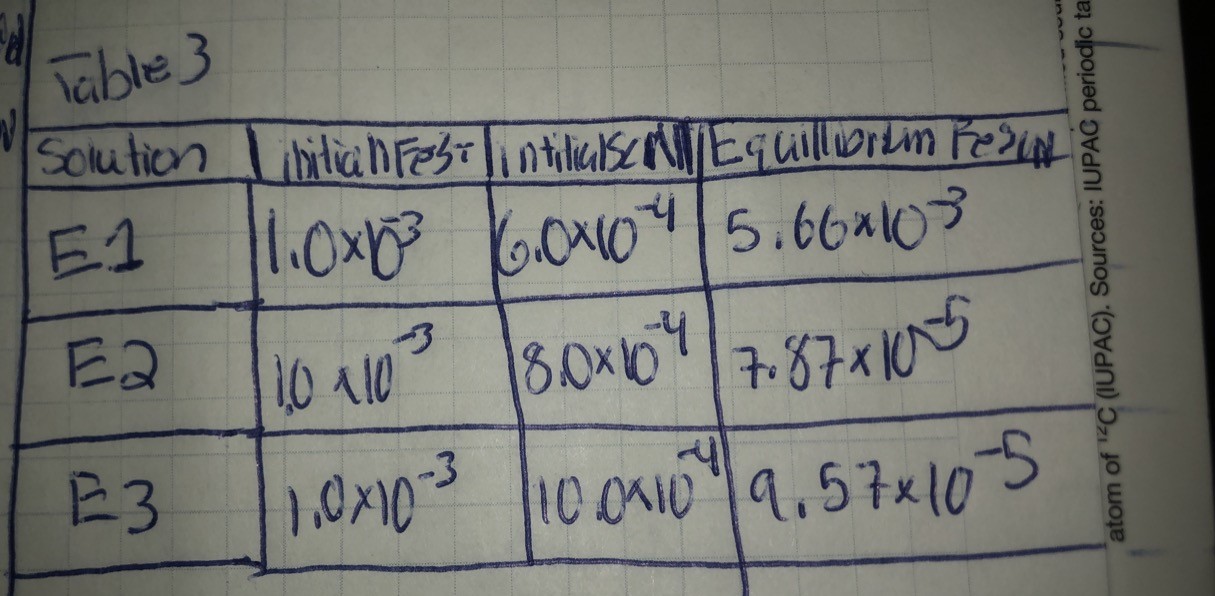 Table 3
Solution initial Fe3+ intitial SCN Equillibrium FeSCN
E1 1.0x10-3 6.0x10-4 5.66x10-3
E2 1.0x10-3 8.0x10-4 7.87x10-5
E3 1.0x10-3 10.0x10-4 9.57x10-5
atom of 12C (IUPAC). Sources: IUPAC periodic ta